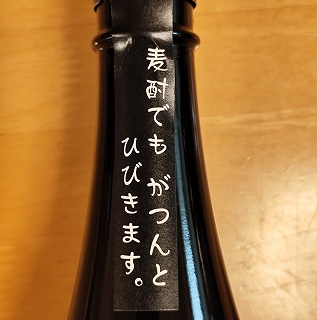 麦酎でも がつんと
ひびきます。